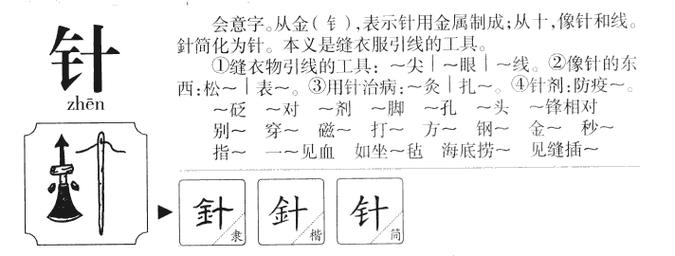 针
zhēn
会意字。从金(钅),表示针用金属制成;从十,像针和线。
針简化为针。本义是缝衣服引线的工具。
①缝衣物引线的工具:～尖｜～眼｜～线。②像针的东
西:松～｜表～。③用针治病:～灸｜扎～。④针剂:防疫～。
～砭 ～对 ～剂 ～脚 ～孔 ～头 ～锋相对
别～ 穿～ 磁～ 打～ 方～ 钢～ 金～ 秒～
指～ 一～见血 如坐～毡 海底捞～ 见缝插～
針 隶 針 楷 针 简